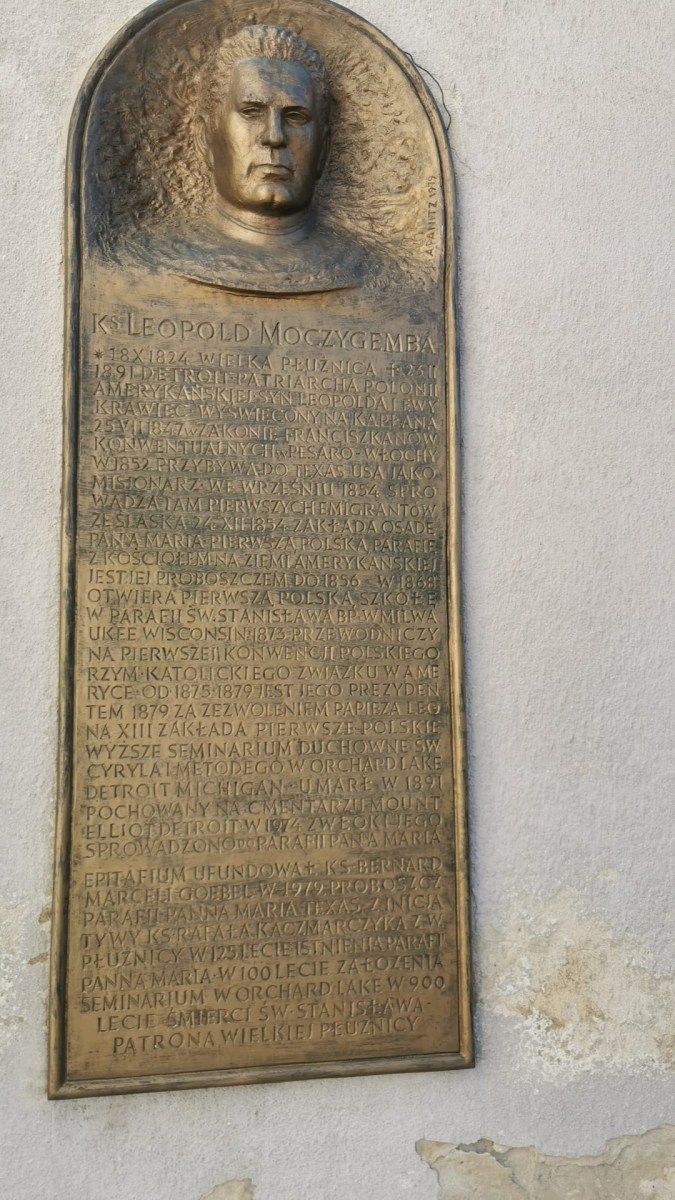 A. WITZ 1979
KS LEOPOLD MOCZYGEMBA
* 18 X 1824 WIELKA PŁUŻNICA + 23 II
1891 DETROIT PATRIARCHA POLONII
AMERYKAŃSKIEJ SYN LEOPOLDA I EWY
KRAWIEC · WYŚWIĘCONY NA KAPŁANA
25 VII 1847 W ZAKONIE FRANCISZKANÓW
KONWENTUALNYCH W PESARO - WŁOCHY
W 1852 PRZYBYWA DO TEXAS USA JAKO
MISJONARZ · WE WRZEŚNIU 1854 SPRO
WADZA TAM PIERWSZYCH EMIGRANTÓW
ZE ŚLĄSKA 24 XII 1854 ZAKŁADA OSADĘ
PANNA MARIA · PIERWSZA POLSKA PARAFIĘ
Z KOŚCIOŁEM NA ZIEMI AMERYKAŃSKIEJ
JEST JEJ PROBOSZCZEM DO 1856 · W 1868
OTWIERA PIERWSZĄ POLSKĄ SZKOŁĘ
W PARAFII ŚW. STANISŁAWA BP · W MILWA
UKEE WISCONSIN · 1873 · PRZEWODNICZY
NA PIERWSZEJ KONWENCJI POLSKIEGO
RZYM · KATOLICKIEGO ZWIĄZKU W AME
RYCE · OD 1875 · 1879 JEST JEGO PREZYDEN
TEM 1879 ZA ZEZWOLENIEM PAPIEŻA LEO
NA XIII ZAKŁADA PIERWSZE POLSKIE
WYŻSZE SEMINARIUM DUCHOWNE ŚW
CYRYLA I METODEGO W ORCHARD LAKE
DETROIT MICHIGAN · UMARŁ W 1891
POCHOWANY NA CMENTARZU MOUNT
ELLIOT DETROIT W 1974 ZWŁOKI JEGO
SPROWADZONO DO PARAFII PANNA MARIA
EPITAFIUM UFUNDOWAŁ KS. BERNARD
MARCELI GOEBEL W 1979 PROBOSZCZ
PARAFII PANNA MARIA TEXAS, Z INICJA
TYWY KS RAFAŁA KACZMARCZYKA Z W
PŁUŻNICY W 125 LECIE ISTNIENIA PARAFI
PANNA MARIA · W 100 LECIE ZAŁOŻENIA
SEMINARIUM W ORCHARD LAKE W 900
LECIE ŚMIERCI ŚW · STANISŁAWA -
PATRONA WIELKIEJ PŁUŻNICY